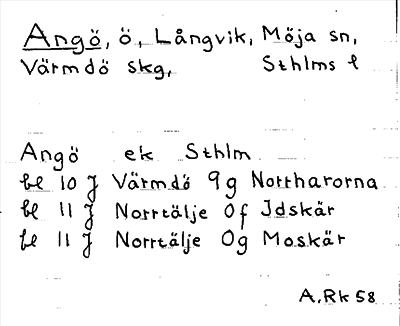 Angö, ö, Långvik, Möja sn,
Värmdö skg, Sthlms l
Angö ek Sthlm
bl 10 J Värmdö 9g Norrharorna
bl 11 J Norrtälje 0f Idskär
bl 11 J Norrtälje 0g Moskär
A.Rk 58